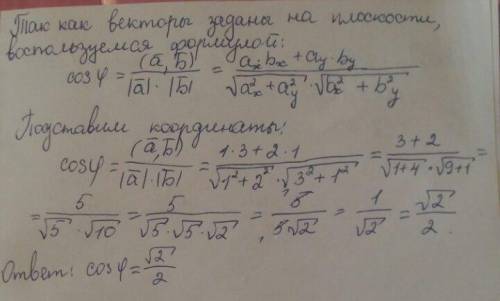 Так как векторы заданы на плоскости,
воспользуемся формулой:
cos φ = (ā, b̄) / (|ā| · |b̄|) = (aₓbₓ + a_y · b_y) / (√(aₓ² + a_y²) · √(bₓ² + b_y²))
Подставим координаты:
cos φ = (ā, b̄) / (|ā| · |b̄|) = (1 · 3 + 2 · 1) / (√(1² + 2²) · √(3² + 1²)) = (3 + 2) / (√(1+4) · √(9+1)) =
= 5 / (√5 · √10) = 5 / (√5 · √5 · √2) = 5 / (5√2) = 1 / √2 = √2 / 2 .
Ответ: cos φ = √2 / 2